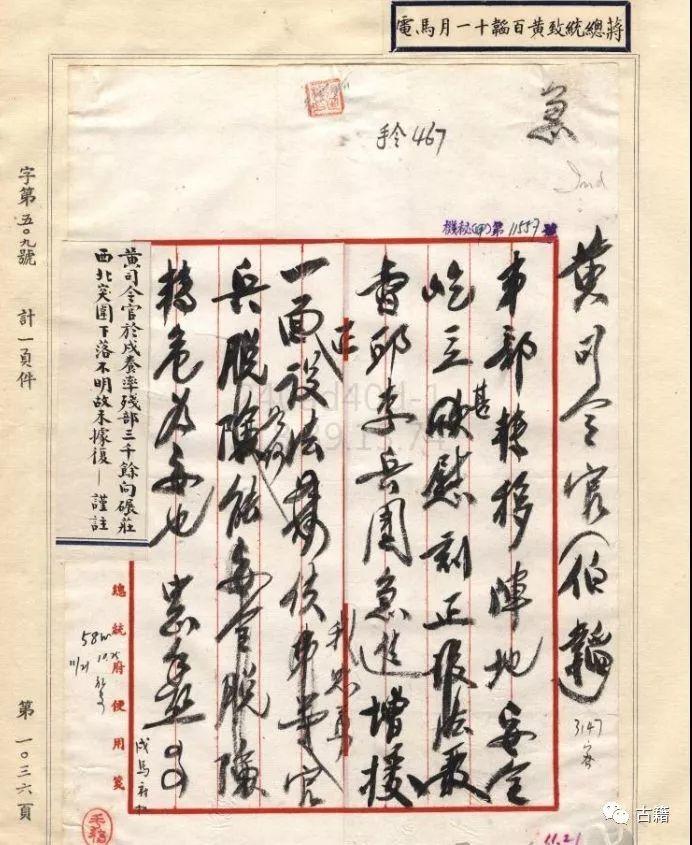 蔣總統致黃百韜十一月馬電
急
手令467
機秘(甲)第11557號
黃司令官(伯韜)
本部轉移陣地安全
屹立甚慰刻正設法嚴
督邱李兵團急進增援
一面設法 使弟等官
兵脫險 能安全脫險
轉危為安也
3147
黃司令官於戌養率殘部三千餘向碾莊
西北突圍下落不明故未據復—謹註
總統府便用箋
11/21
字第五〇九號
計一頁件
第一〇三六頁
11.21
古籍